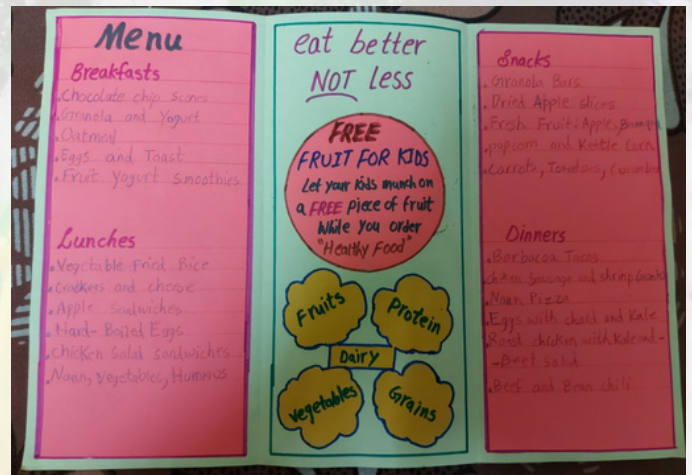 Menu
Breakfasts
.Chocolate chip Scones
.Granola and Yogurt
.Oatmeal
.Eggs and Toast
.Fruit Yogurt Smoothies
Lunches
.Vegetable Fried Rice
.Crackers and cheese
.Apple Sandwiches
.Hard-Boiled Eggs
.Chicken Salad sandwiches
.Naan, vegetables, Hummus
eat better
NOT less
FREE
FRUIT FOR KIDS
Let your kids munch on
a FREE piece of fruit
While you order
"Healthy Food"
Fruits
Protein
Dairy
vegetables
Grains
Snacks
.Granola Bars
.Dried Apple slices
.Fresh Fruit: Apple,
.popcorn and Kettle Corn
.Carrots, Tomatoes,
Dinners
.Barbacoa Tacos
sausage and shrimp
.Naan Pizza
.Eggs with chard and Kale
.Roast chicken with Kale and-
-Beet Salad
.Beef and Bean chili